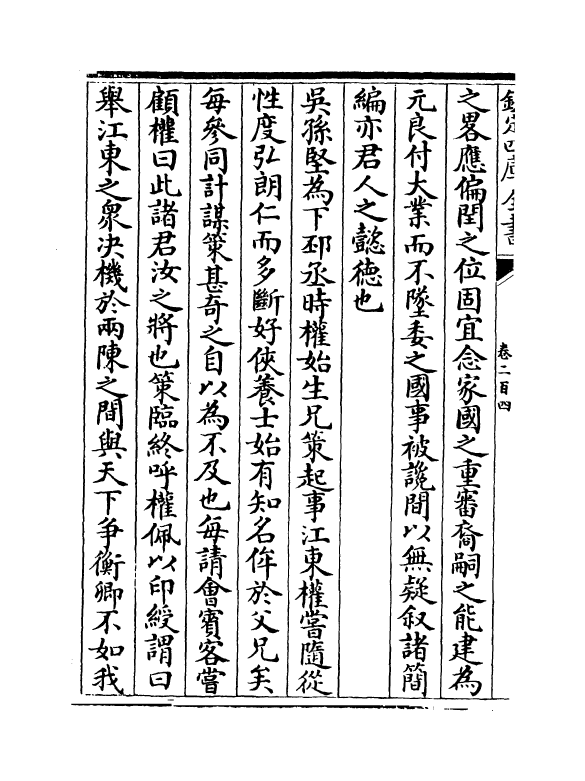 欽定四庫全書
卷二百四
之畧應偏閏之位固宜念家國之重審裔嗣之能建為
元良付大業而不墜委之國事被讒間以無疑叙諸簡
編亦君人之懿徳也
吳孫堅為下邳丞時權始生兄策起事江東權嘗隨從
性度弘朗仁而多斷好俠養士始有知名侔於父兄矣
每參同計謀策甚奇之自以為不及也每請會賓客嘗
顧權曰此諸君汝之將也策臨終呼權佩以印綬謂曰
舉江東之衆决機於兩陳之間與天下争衡卿不如我